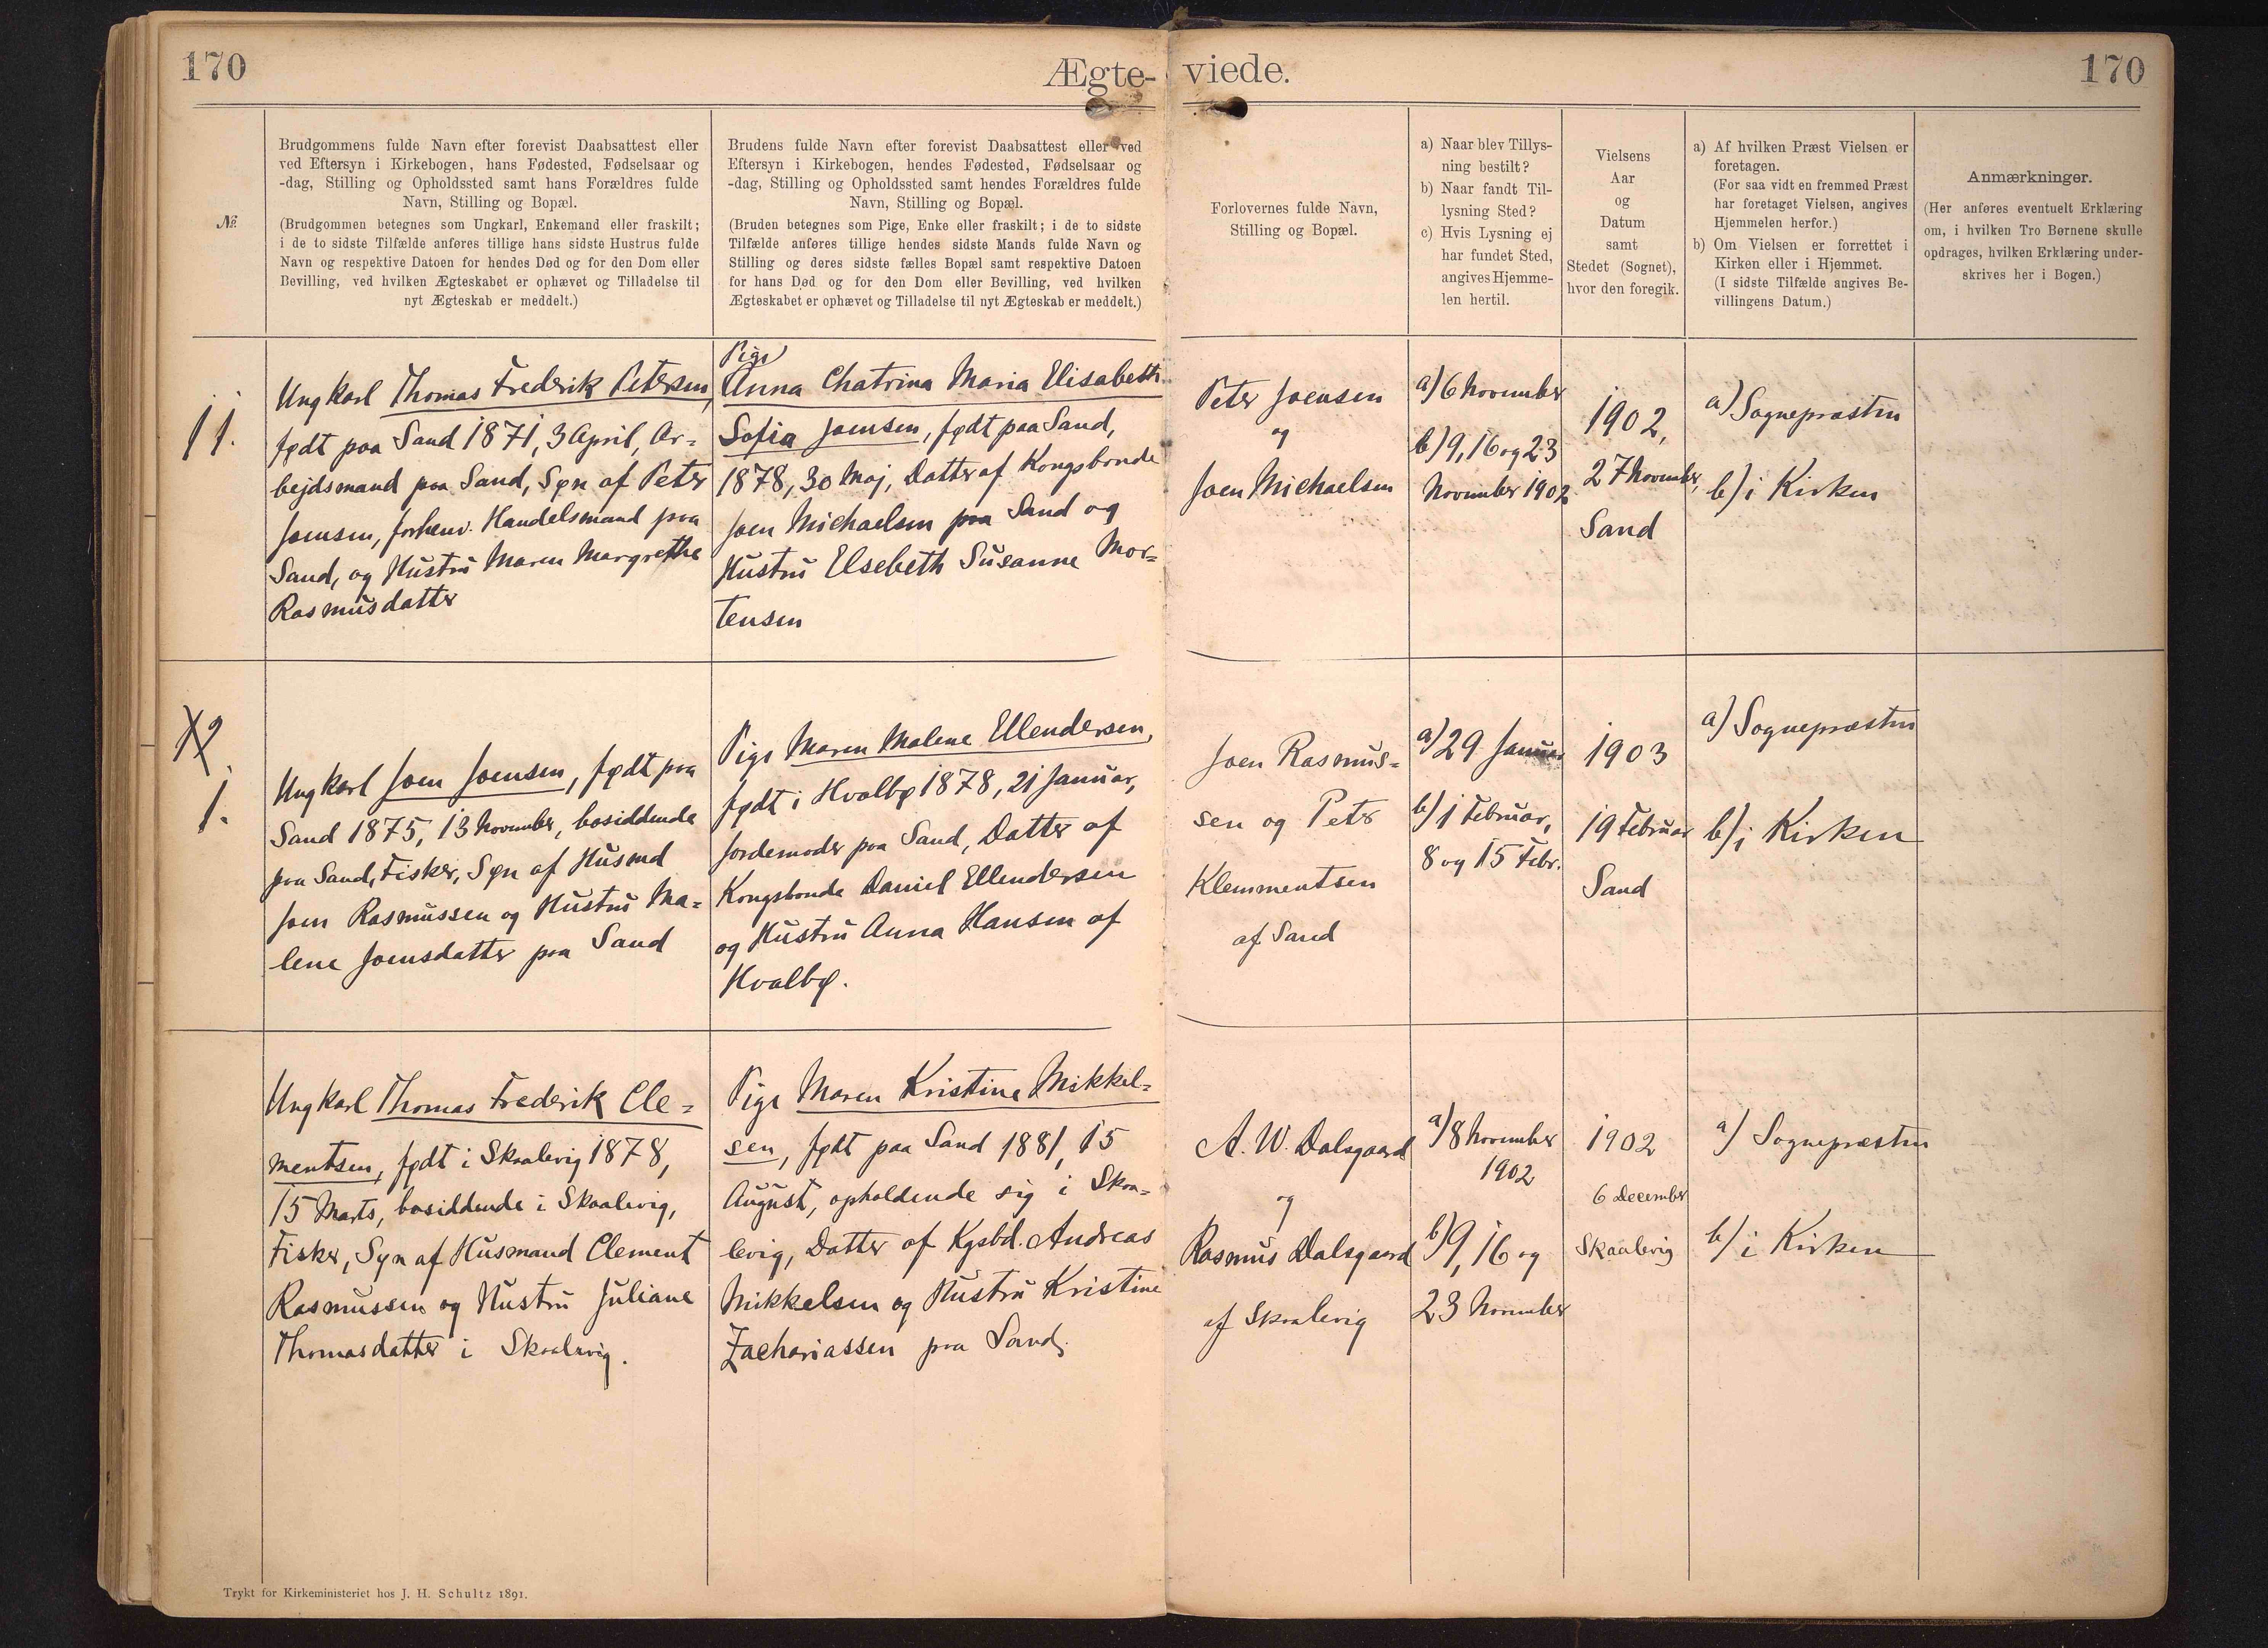 170
Ægte-
viede.
170
№.
Brudgommens fulde Navn efter forevist Daabsattest eller
ved Eftersyn i Kirkebogen, hans Fødested, Fødselsaar og
-dag, Stilling og Opholdssted samt hans Forældres fulde
Navn, Stilling og Bopæl.
(Brudgommen betegnes som Ungkarl, Enkemand eller fraskilt;
i de to sidste Tilfælde anføres tillige hans sidste Hustrus fulde
Navn og respektive Datoen for hendes Død og for den Dom eller
Bevilling, ved hvilken Ægteskabet er ophævet og Tilladelse til
nyt Ægteskab er meddelt.)
Brudens fulde Navn efter forevist Daabsattest eller ved
Eftersyn i Kirkebogen, hendes Fødested, Fødselsaar og
-dag, Stilling og Opholdssted samt hendes Forældres fulde
Navn, Stilling og Bopæl.
(Bruden betegnes som Pige, Enke eller fraskilt; i de to sidste
Tilfælde anføres tillige hendes sidste Mands fulde Navn og
Stilling og deres sidste fælles Bopæl samt respektive Datoen
for hans Død og for den Dom eller Bevilling, ved hvilken
Ægteskabet er ophævet og Tilladelse til nyt Ægteskab er meddelt.)
Forlovernes fulde Navn,
Stilling og Bopæl.
a) Naar blev Tillys-
ning bestilt?
b) Naar fandt Til-
lysning Sted?
c) Hvis Lysning ej
har fundet Sted,
angives Hjemme-
len hertil.
Vielsens
Aar
og
Datum
samt
Stedet (Sognet),
hvor den foregik.
a) Af hvilken Præst Vielsen er
foretagen.
(For saa vidt en fremmed Præst
har foretaget Vielsen, angives
Hjemmelen herfor.)
b) Om Vielsen er forrettet i
Kirken eller i Hjemmet.
(I sidste Tilfælde angives Be-
villingens Datum.)
Anmærkninger.
(Her anføres eventuelt Erklæring
om, i hvilken Tro Børnene skulle
opdrages, hvilken Erklæring under-
skrives her i Bogen.)
11.
Ungkarl Thomas Frederik Petersen,
født paa Sand 1871, 3 April, Ar=
bejdsmand paa Sand, Søn af Peter
Joensen, forhenv. Handelsmand paa
Sand, og Hustru Maren Margrethe
Rasmusdatter
Pige
Anna Chatrina Maria Elisabeth
Sofia Joensen, født paa Sand,
1878, 30 Maj, Datter af Kongsbonde
Joen Michaelsen paa Sand og
Hustru Elsebeth Susanne Mor=
tensen
Peter Joensen
og
Joen Michaelsen
a) 6 November
b) 9, 16 og 23
November 1902
1902,
27 November,
Sand
a) Sognepræsten
b) i Kirken
1.
Ungkarl Joen Joensen, født paa
Sand 1875, 13 November, bosiddende
paa Sand, Fisker, Søn af Husmd
Joen Rasmussen og Hustru Ma=
lene Joensdatter paa Sand
Pige Maren Malene Ellendersen,
født i Hvalbø 1878, 21 Januar,
Jordemoder paa Sand, Datter af
Kongsbonde Daniel Ellendersen
og Hustru Anna Hansen af
Hvalbø.
Joen Rasmus=
sen og Peter
Klemmentsen
af Sand
a) 29 Januar
b) 1 Februar,
8 og 15 Febr.
1903
19 Februar
Sand
a) Sognepræsten
b) i Kirken
Ungkarl Thomas Frederik Cle=
mentsen, født i Skaalevig 1878,
15 Marts, bosiddende i Skaalevig,
Fisker, Søn af Husmand Clement
Rasmussen og Hustru Juliane
Thomasdatter i Skaalevig.
Pige Maren Kristine Mikkel=
sen, født paa Sand 1881, 15
August, opholdende sig i Skaa=
levig, Datter af Kgsbd. Andreas
Mikkelsen og Hustru Kristine
Zachariassen paa Sand.
A. W. Dalsgaard
og
Rasmus Dalsgaard
af Skaalevig
a) 8 November
1902
b) 9, 16 og
23 November
1902
6 December
Skaalevig
a) Sognepræsten
b) i Kirken
Trykt for Kirkeministeriet hos J. H. Schultz 1891.